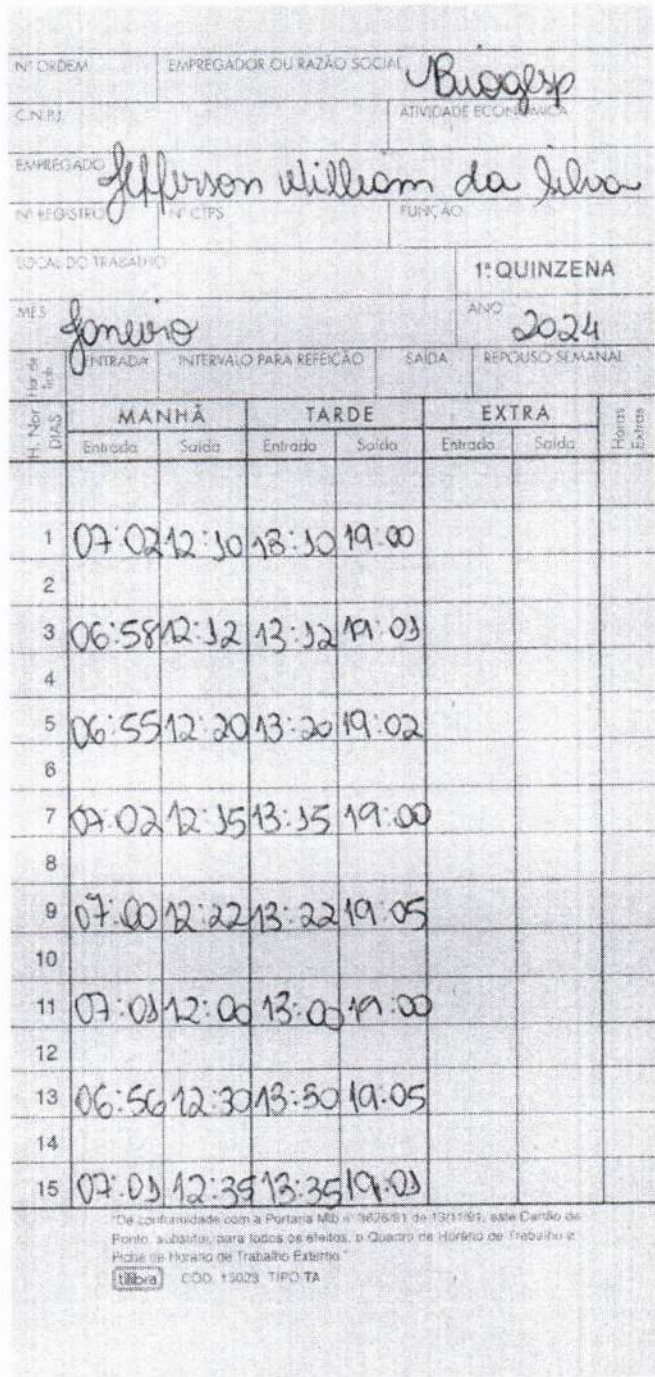 Nº ORDEM EMPREGADOR OU RAZÃO SOCIAL Biogesp
C.N.P.J. ATIVIDADE ECONÔMICA
EMPREGADO Jefferson William da Silva
Nº REGISTRO Nº CTPS FUNÇÃO
LOCAL DO TRABALHO 1ª QUINZENA
MÊS Janeiro ANO 2024
Hor de Trab. ENTRADA INTERVALO PARA REFEIÇÃO SAÍDA REPOUSO SEMANAL
H. Nor. DIAS MANHÃ TARDE EXTRA Horas Extras
Entrada Saída Entrada Saída Entrada Saída
1 07:02 12:10 13:10 19:00
2
3 06:58 12:12 13:12 19:01
4
5 06:55 12:20 13:20 19:02
6
7 07:02 12:15 13:15 19:00
8
9 07:00 12:22 13:22 19:05
10
11 07:01 12:00 13:00 19:00
12
13 06:56 12:30 13:30 19:05
14
15 07:01 12:35 13:35 19:01
"De conformidade com a Portaria Mtb nº 3626/91 de 13/11/91, este Cartão de
Ponto, substitui, para todos os efeitos, o Quadro de Horário de Trabalho e
Ficha de Horário de Trabalho Externo."
tilibra CÓD. 15023 TIPO TA